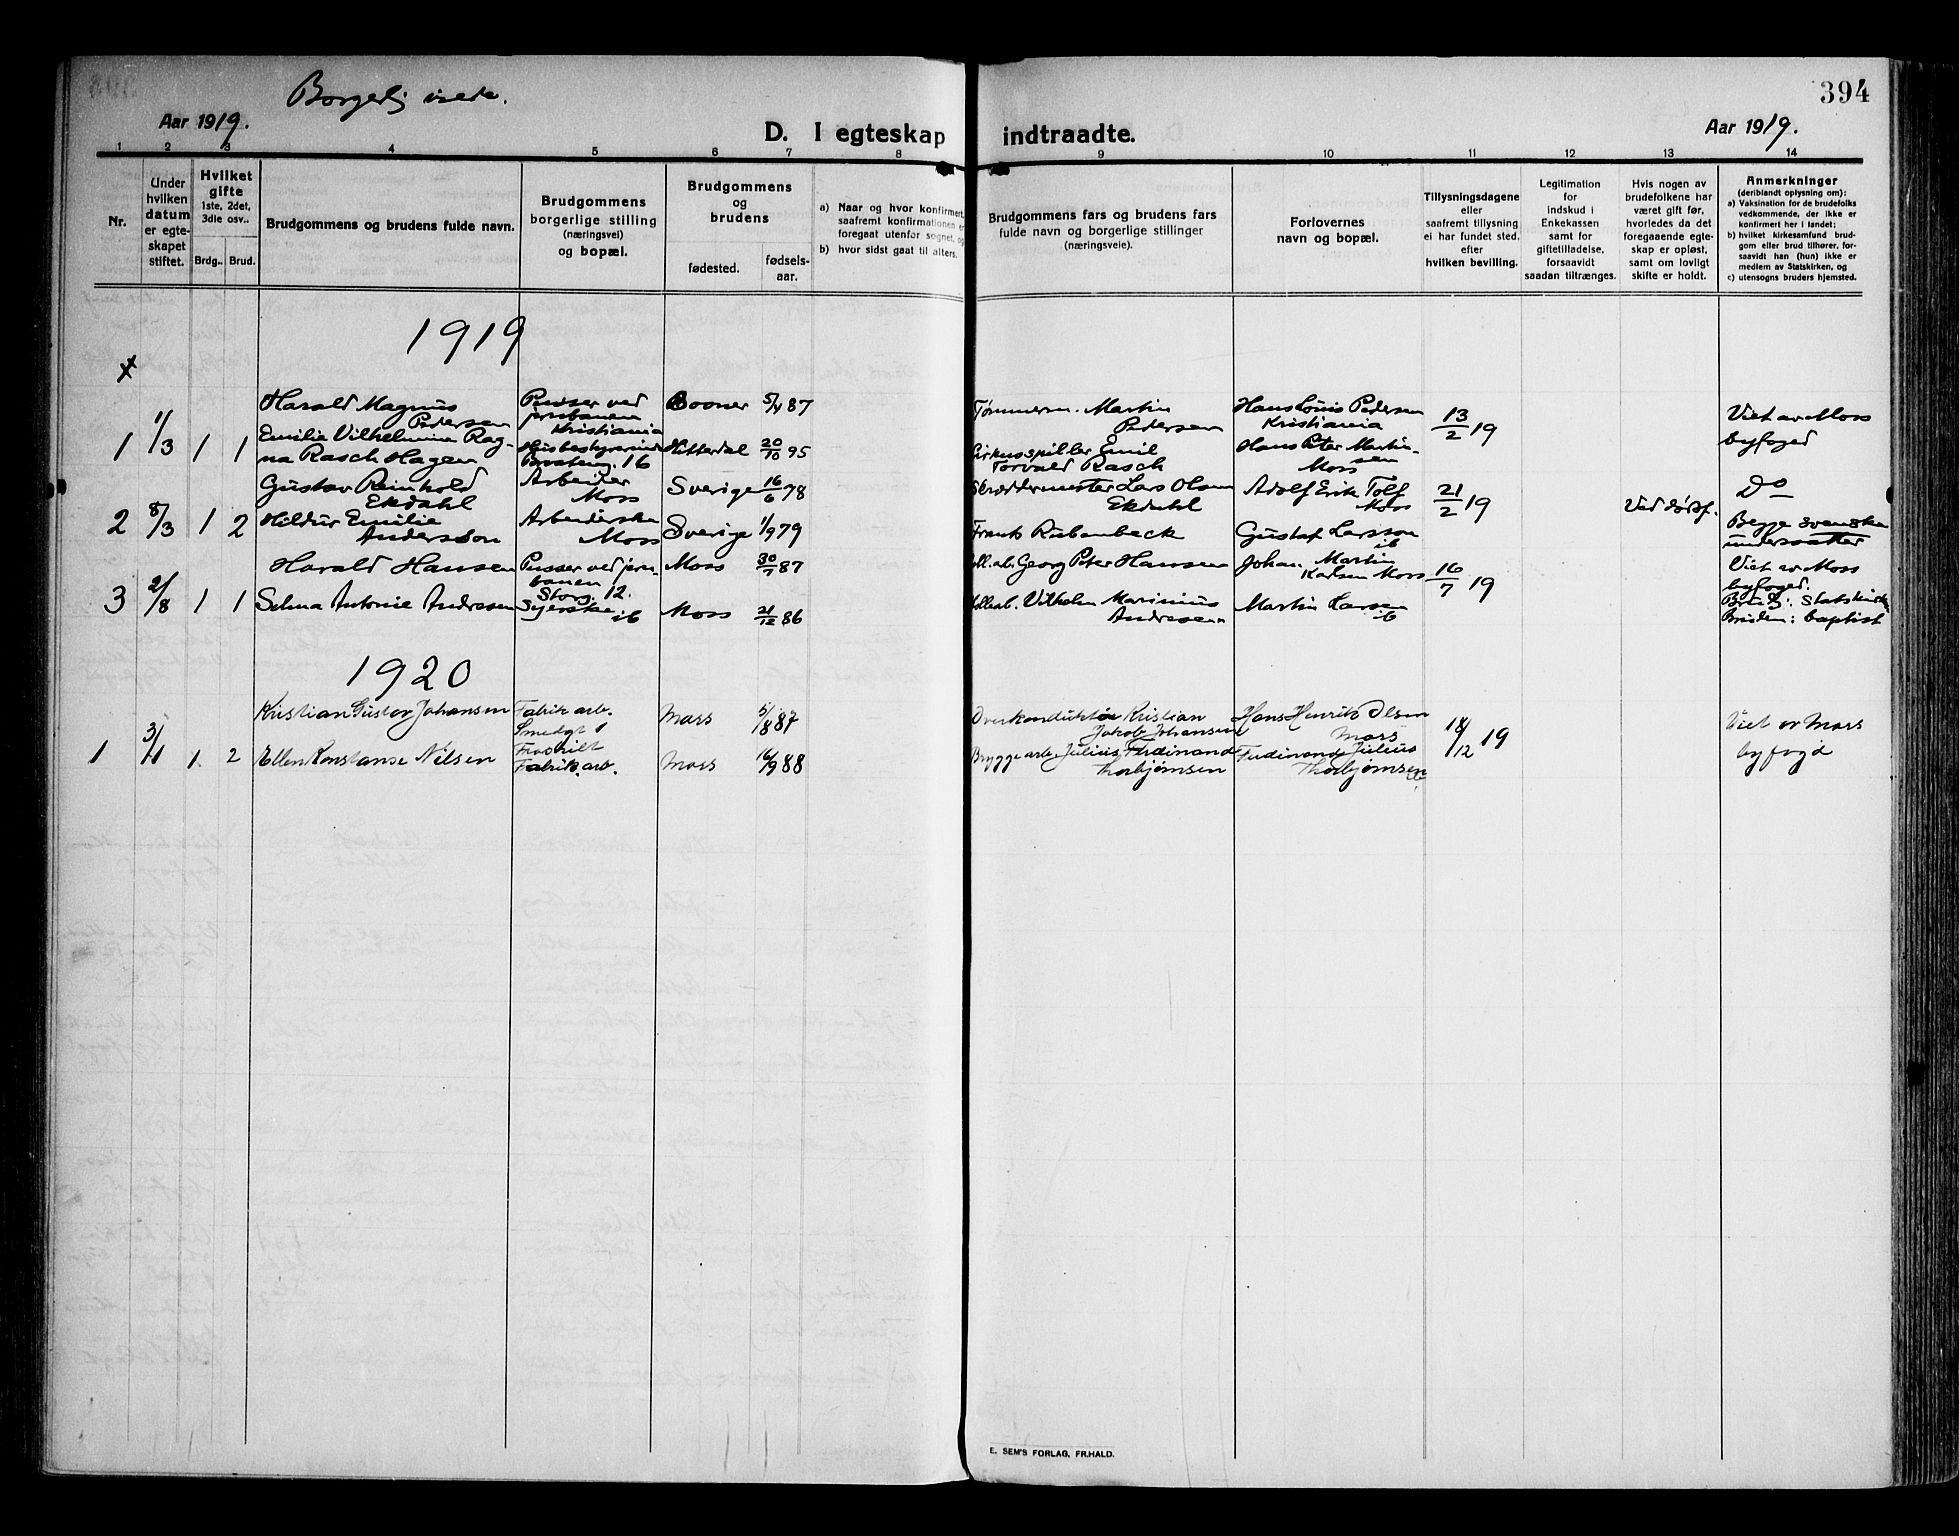 394
Borgerlig viede.
Aar 1919.
D. I egteskap indtraadte.
Aar 1919.
1 2 3 4 5 6 7 8 9 10 11 12 13 14
Nr.
Under
hvilken
datum
er egte-
skapet
stiftet.
Hvilket
gifte
1ste, 2det,
3die osv..
Brdg.. Brud.
Brudgommens og brudens fulde navn.
Brudgommens
borgerlige stilling
(næringsvei)
og bopæl.
Brudgommens
og
brudens
fødested.
fødsels-
aar.
a) Naar og hvor konfirmert,
saafremt konfirmationen er
foregaat utenfor sognet, og
b) hvor sidst gaat til alters.
Brudgommens fars og brudens fars
fulde navn og borgerlige stillinger
(næringsveie).
Forlovernes
navn og bopæl.
Tillysningsdagene
eller
saafremt tillysning
ei har fundet sted.
efter
hvilken bevilling.
Legitimation
for
indskud i
Enkekassen
samt for
giftetilladelse,
forsaavidt
saadan tiltrænges.
Hvis nogen av
brudefolkene har
været gift før,
hvorledes da det
foregaaende egte-
skap er opløst,
samt om lovligt
skifte er holdt.
Anmerkninger
(deriblandt oplysning om):
a) Vaksination for de brudefolks
vedkommende, der ikke er
konfirmert her i landet;
b) hvilket kirkesamfund brud-
gom eller brud tilhører, for-
saavidt han (hun) ikke er
medlem av Statskirken, og
c) utensogns bruders hjemsted.
1919
x
1 1/3 1 1
Harald Magnus
Pedersen
Emilie Vilhelmine Rag-
na Rasch Hagen
Pusser ved
jernbanen
Kristiania
Husbestyrerinde
16
5/4 87
Hitterdal 20/10 95
Tømmerm. Martin
Pedersen
Cirkusspiller Emil
Torvald Rasch
Hans Louis Pedersen
Kristiania
Hans Peter Martin-
sen
Moss
13/2 19
Viet av Moss
byfoged
2 8/3 1 2
Gustav Reinhold
Ekdahl
Hildur Emilie
Andersson
Arbeider
Moss
Arbeiderske
Moss
Sverige 16/6 78
Sverige 1/9 79
Skræddermester Lars Olsen
Ekdahl
Frants Rubenbeck
Adolf Erik Tolf
Moss
Gustaf Larsson
ib
21/2 19
Ved dødsf.
Do
Begge svenske
undersaatter
3 2/8 1 1
Harald Hansen
Selma Antonie Andresen
Pusser ved jern-
banen
Storg. 12.
Syerske
ib
Moss 30/7 87
Moss 21/12 86
Georg Peter Hansen
Vilhelm Marinius
Andresen
Johan Martin
Karlsen Moss
Martin Larsen
ib
16/7 19
Viet av Moss
byfoged.
Brudg: Statskirke
Bruden: baptist
1920
1 3/1 1. 2
Kristian Gustav Johansen
Ellen Konstanse Nilsen
Fabrik arb.
Smedgt 1
Fraskilt
Fabrik. arb.
Moss 5/8 87
Moss 16/9 88
Overkonduktør Kristian
Jakob Johansen
Brygge arb. Julius Ferdinand
Thorbjørnsen
Hans Henrik Olsen
Moss
Ferdinand Julius
Thorbjørnsen
18/12 19
Viet av Moss
byfogd
E. SEM'S FORLAG, FR.HALD.